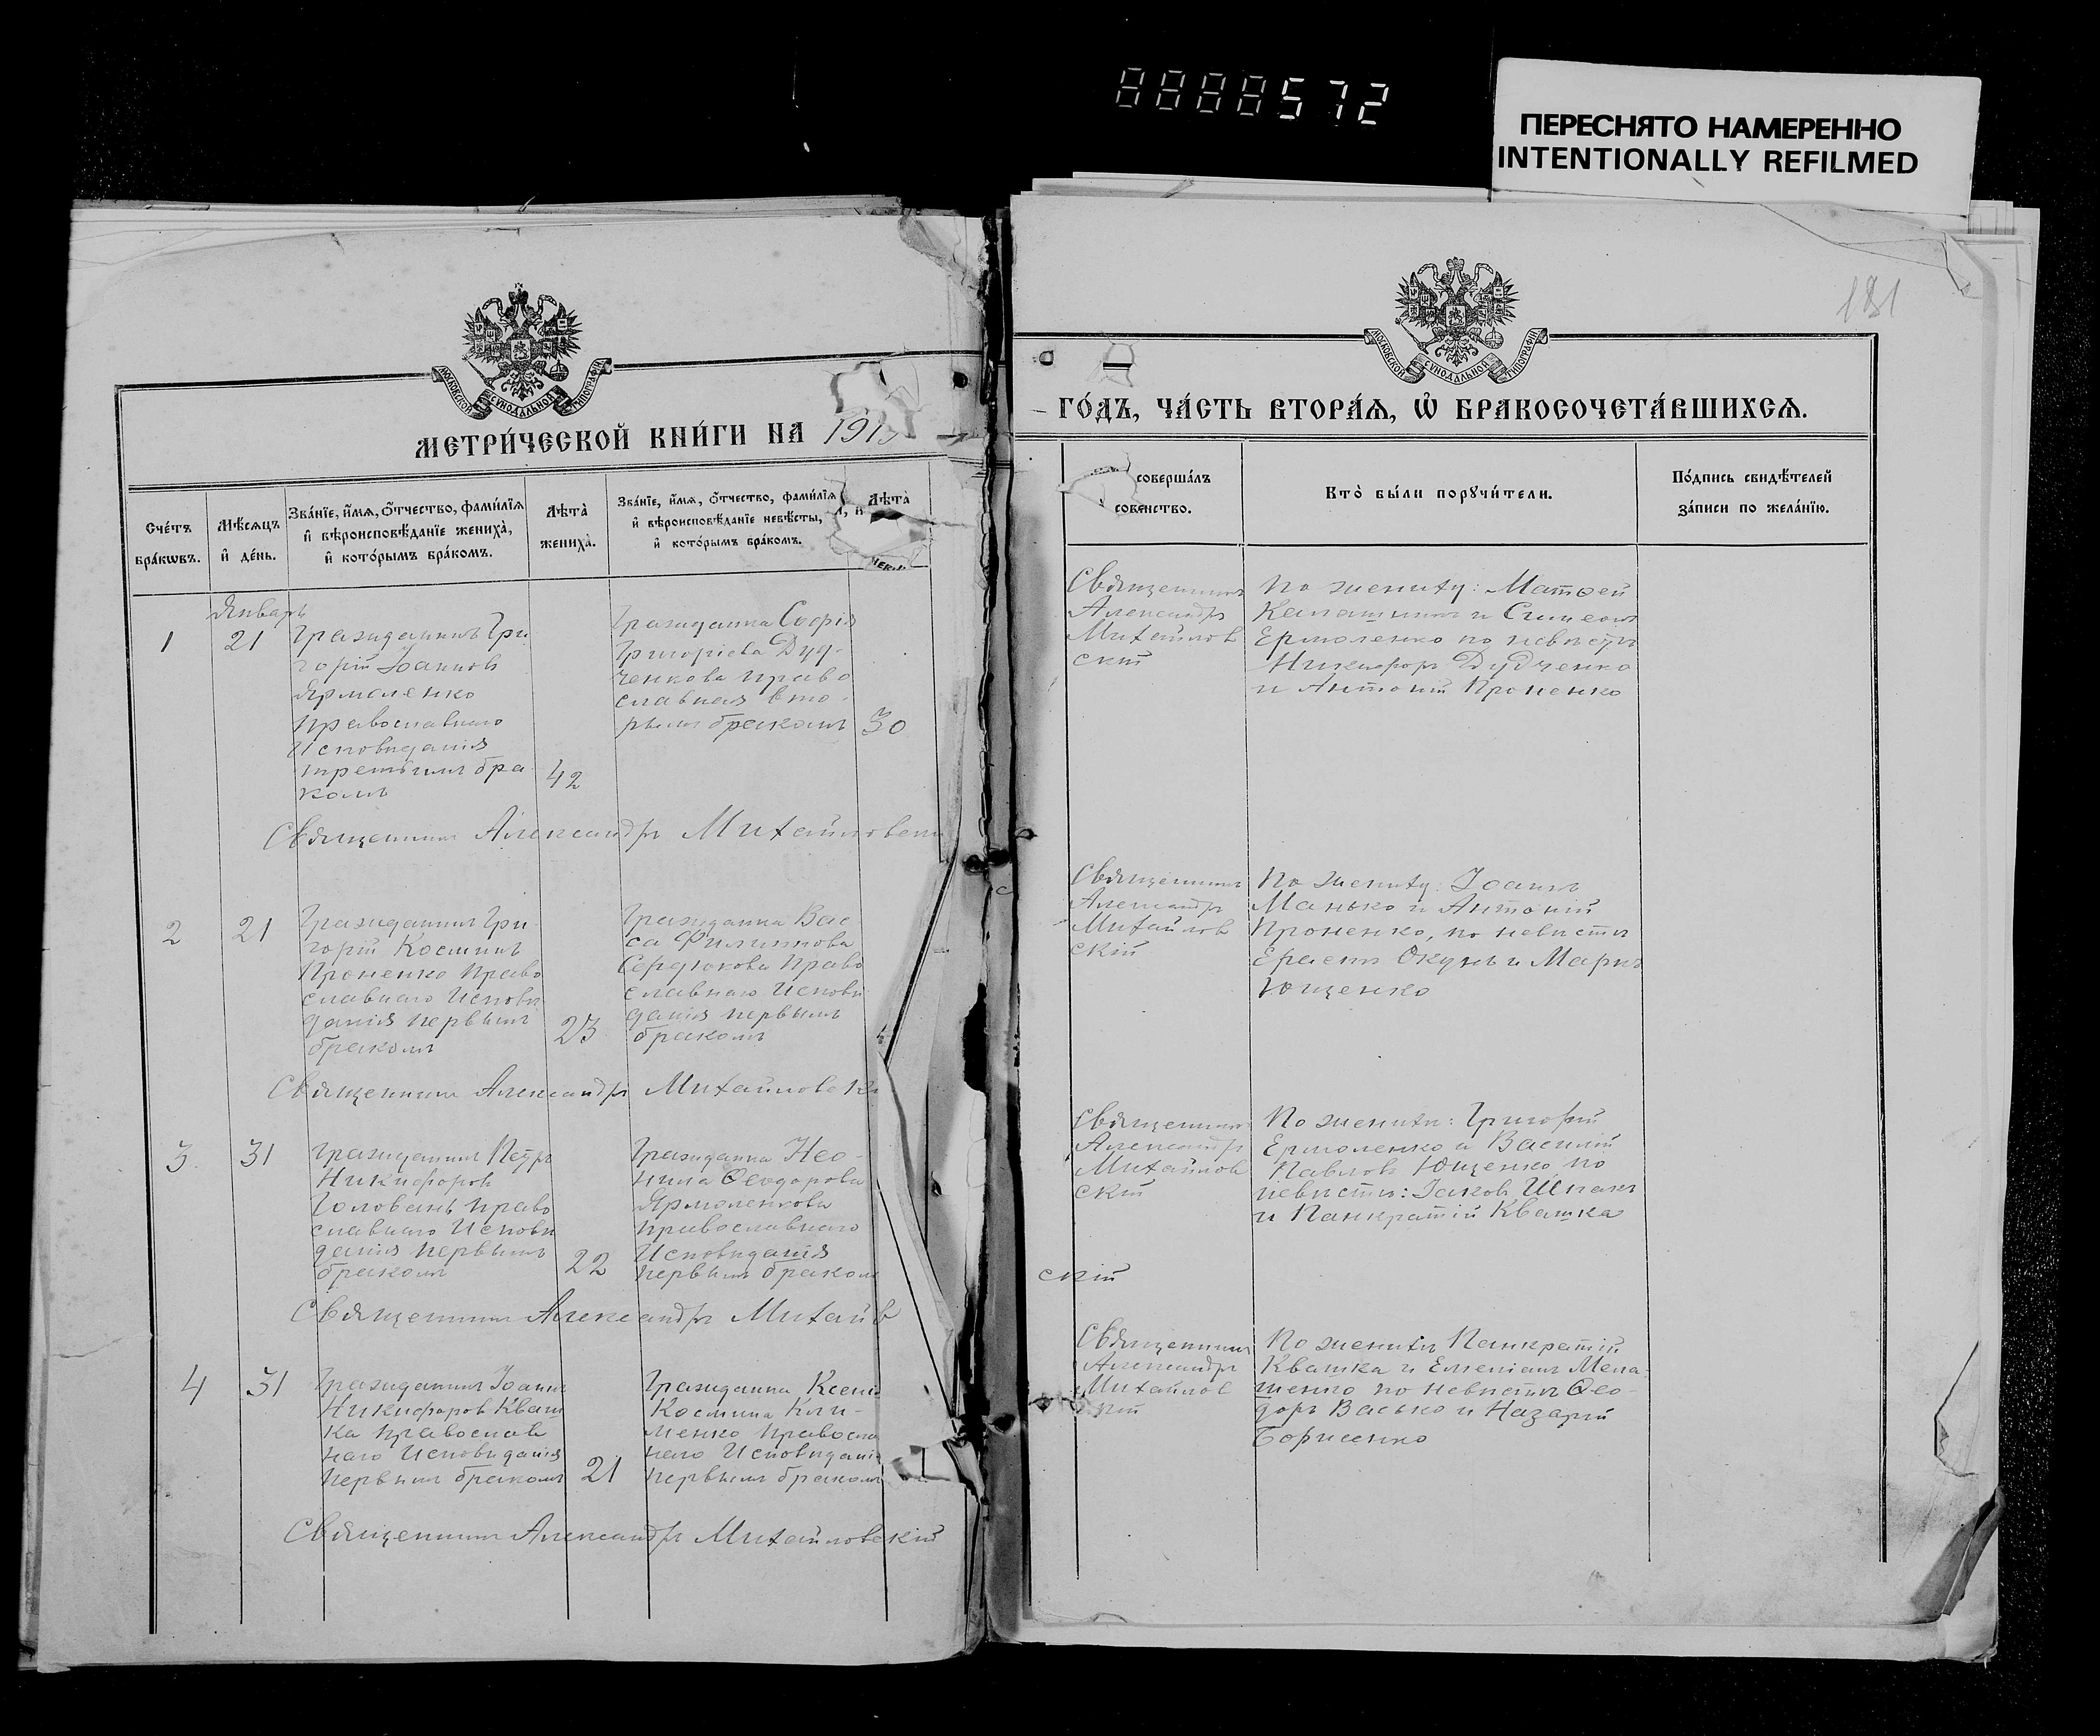 8888572
ПЕРЕСНЯТО НАМЕРЕННО
INTENTIONALLY REFILMED
181
МОСКОВСКОЙ СѴНОДАЛЬНОЙ ТИПОГРАФІИ
МОСКОВСКОЙ СѴНОДАЛЬНОЙ ТИПОГРАФІИ
МЕТРИ́ЧЕСКОЙ КНИ́ГИ НА 191
ГО́ДЪ, ЧА́СТЬ ВТОРА́Ѧ, Ѽ БРАКОСОЧЕТА́ВШИХСѦ.
Сче́тъ бра́кѡвъ.
Мѣ́сѧцъ и҆ де́нь.
Зва́нїе, и҆́мѧ, ѻ҆́тчество, фами́лїѧ
и҆ вѣроисповѣ́данїе жениха̀,
и҆ кото́рымъ бра́комъ.
Лѣ́та̀ жениха̀.
Зва́нїе, и҆́мѧ, ѻ҆́тчество, фами́лїѧ
и҆ вѣроисповѣ́данїе невѣ́сты,
и҆ кото́рымъ бра́комъ.
Лѣ́та̀
соверша́лъ
Кто̀ бы́ли порꙋчи́тели.
По́дпись свидѣ́телей
за́писи по жела́нїю.
Январь
1
21
Гражданинъ Гри
горій Іоанновъ
Ярмоленко
православнаго
Исповиданія
третьимъ бра
комъ
42
Гражданка Софія
Григоріева Дуд-
ченкова право
славная вто-
рымъ бракомъ
30
Священникъ
Александръ
Михайлов
скій
По жениху: Матѳей
Калашникъ и Симеонъ
Ермоленко по невисти
Никифоръ Дудченко
и Антоній Проненко
Священникъ Александръ Михайловски
2
21
Гражданинъ Гри-
горій Косминъ
Проненко Право
славнаго Исповн
данія первымъ
бракомъ
23
Гражданка Вас-
са Филиппова
Сердюкова Право
славнаго Исповн
данія первымъ
бракомъ
Священникъ
Александръ
Михайлов
скій
По жениху: Іоаннъ
Манько и Антоній
Проненко, по невисти
Ерастъ Окунь и Маркъ
Ющенко
Священникъ Александръ Михайловск
3
31
Гражданинъ Петръ
Никифоровъ
Головань право
славнаго Исповн
данія первымъ
бракомъ
22
Гражданка Нео-
нила Ѳеодорова
Ярмоленкова
православнаго
Исповиданія
первымъ браком
Священникъ
Александръ
Михайлов
скій
По жениху: Григорій
Ермоленко и Василій
Павловъ Ющенко по
невисти: Іаковъ
и Панкратій Квашка
Священникъ Александръ Михайлов
скій
4
31
Гражданинъ Іоаннъ
Никифоровъ Кваш
ка православ
наго Исповиданія
первымъ бракомъ
21
Гражданка Ксені
Космина Кли-
менко правосла
наго Исповидані
первымъ бракомъ
Священникъ
Александръ
Михайлов
скій
По жениху Панкратій
Квашка и Емеліанъ Мела-
шенко по невисти Ѳео-
доръ Васько и Назарій
Борисенко
Священникъ Александръ Михайловскій